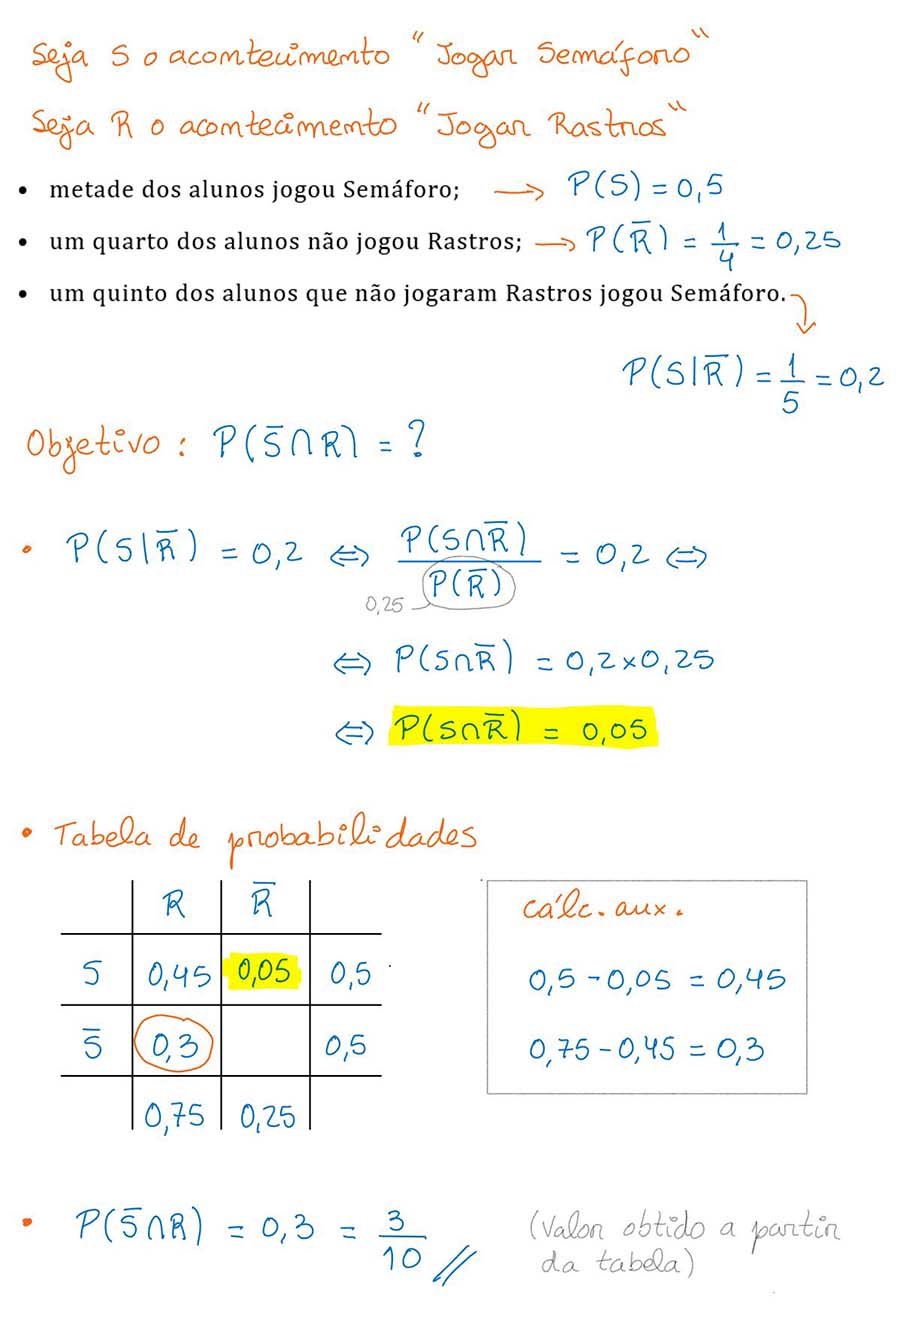 Seja S o acontecimento "Jogar Semáforo"
Seja R o acontecimento "Jogar Rastros"
• metade dos alunos jogou Semáforo; → P(S) = 0,5
• um quarto dos alunos não jogou Rastros; → P(R̅) = 1/4 = 0,25
• um quinto dos alunos que não jogaram Rastros jogou Semáforo. →
P(S|R̅) = 1/5 = 0,2
Objetivo: P(S̅∩R) = ?
• P(S|R̅) = 0,2 ⇔ P(S∩R̅)/P(R̅) = 0,2 ⇔
0,25
⇔ P(S∩R̅) = 0,2×0,25
⇔ P(S∩R̅) = 0,05
• Tabela de probabilidades
R R̅
S 0,45 0,05 0,5
S̅ 0,3 0,5
0,75 0,25
cálc. aux.
0,5 - 0,05 = 0,45
0,75 - 0,45 = 0,3
• P(S̅∩R) = 0,3 = 3/10 //
(Valor obtido a partir
da tabela)